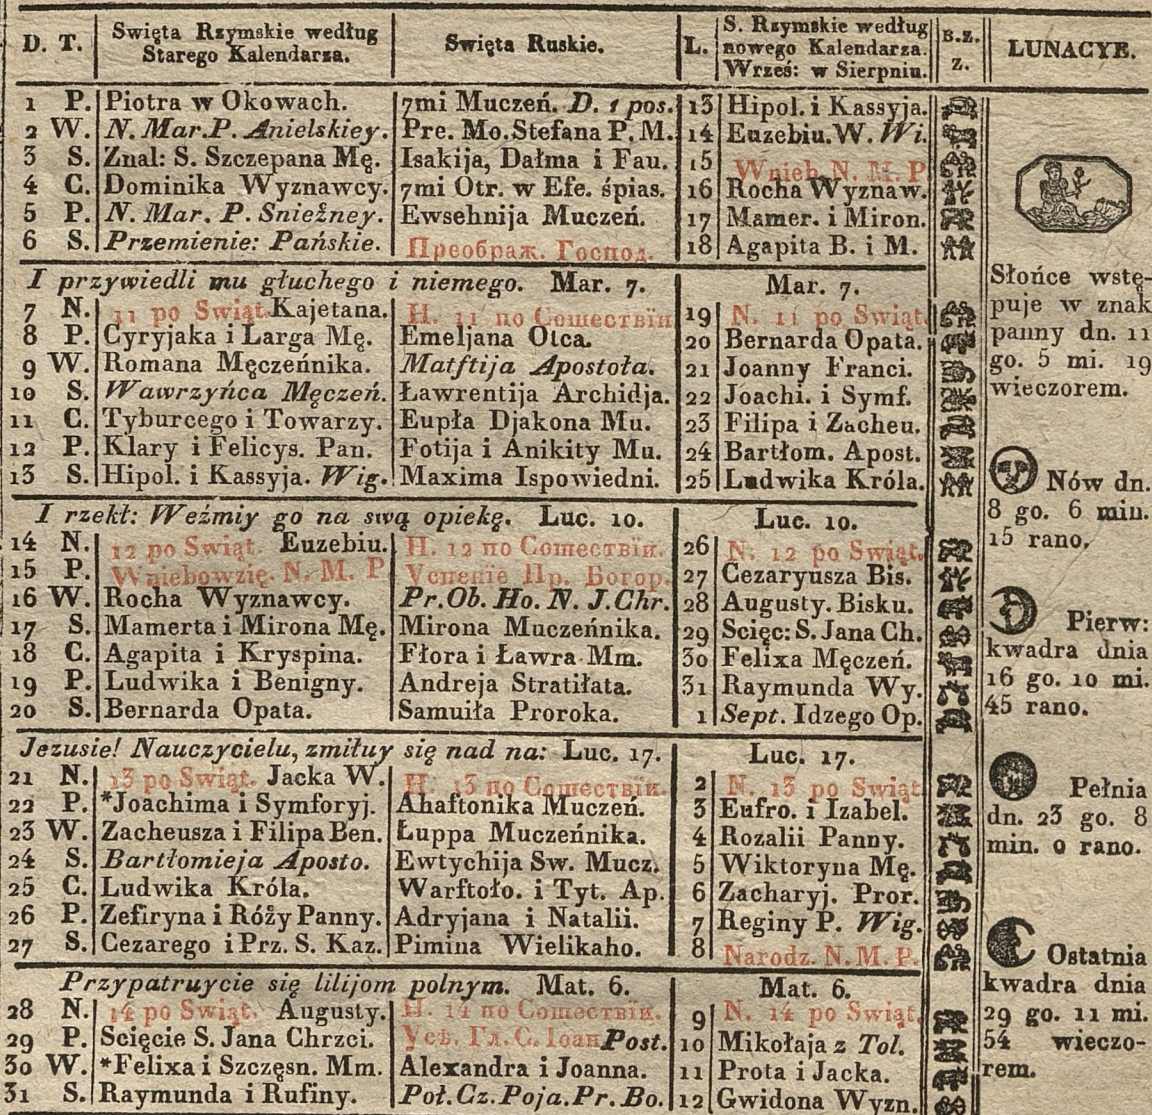 D. T. Swięta Rzymskie według Starego Kalendarza. Swięta Ruskie. L. S. Rzymskie według nowego Kalendarza. Wrześ: w Sierpniu. B.Z. Z. LUNACYE.
1 P. Piotra w Okowach. 7mi Muczeń. D. 1 pos. 13 Hipol. i Kassyja.
2 W. N. Mar. P. Anielskiey. Pre. Mo. Stefana P. M. 14 Euzebiu. W. Wi.
3 S. Znal: S. Szczepana Mę. Isakija, Dałma i Fau. 15 Wnieb. N. M. P
4 C. Dominika Wyznawcy. 7mi Otr. w Efe. śpias. 16 Rocha Wyznaw.
5 P. N. Mar. P. Snieżney. Ewsehnija Muczeń. 17 Mamer. i Miron.
6 S. Przemienie: Pańskie. Преображ. Господ. 18 Agapita B. i M.
I przywiedli mu głuchego i niemego. Mar. 7. Mar. 7.
7 N. 11 po Swiąt. Kajetana. Н. 11 по Сошествїи 19 N. 11 po Swiąt.
8 P. Cyryjaka i Larga Mę. Emeljana Otca. 20 Bernarda Opata.
9 W. Romana Męczeńnika. Matftija Apostoła. 21 Joanny Franci.
10 S. Wawrzyńca Męczeń. Ławrentija Archidja. 22 Joachi. i Symf.
11 C. Tyburcego i Towarzy. Eupła Djakona Mu. 23 Filipa i Zacheu.
12 P. Klary i Felicys. Pan. Fotija i Anikity Mu. 24 Bartłom. Apost.
13 S. Hipol. i Kassyja. Wig. Maxima Ispowiedni. 25 Ludwika Króla.
I rzekł: Weźmiy go na swą opiekę. Luc. 10. Luc. 10.
14 N. 12 po Swiąt. Euzebiu. Н. 12 по Сошествїи. 26 N. 12 po Swiąt.
15 P. Wniebowzię. N. M. P Успенїе Пр. Богор. 27 Cezaryusza Bis.
16 W. Rocha Wyznawcy. Pr. Ob. Ho. N. J. Chr. 28 Augusty. Bisku.
17 S. Mamerta i Mirona Mę. Mirona Muczeńnika. 29 Scięc: S. Jana Ch.
18 C. Agapita i Kryspina. Fłora i Ławra Mm. 30 Felixa Męczeń.
19 P. Ludwika i Benigny. Andreja Stratiłata. 31 Raymunda Wy.
20 S. Bernarda Opata. Samuiła Proroka. 1 Sept. Idzego Op.
Jezusie! Nauczycielu, zmiłuy się nad na: Luc. 17. Luc. 17.
21 N. 13 po Swiąt. Jacka W. Н. 13 по Сошествїи. 2 N. 13 po Swiąt.
22 P. *Joachima i Symforyj. Ahaftonika Muczeń. 3 Eufro. i Izabel.
23 W. Zacheusza i Filipa Ben. Łuppa Muczeńnika. 4 Rozalii Panny.
24 S. Bartłomieja Aposto. Ewtychija Sw. Mucz. 5 Wiktoryna Mę.
25 C. Ludwika Króla. Warftoło. i Tyt. Ap. 6 Zacharyj. Pror.
26 P. Zefiryna i Róży Panny. Adryjana i Natalii. 7 Reginy P. Wig.
27 S. Cezarego i Prz. S. Kaz. Pimina Wielikaho. 8 Narodz. N. M. P.
Przypatruycie się lilijom polnym. Mat. 6. Mat. 6.
28 N. 14 po Swiąt. Augusty. Н. 14 по Сошествїи. 9 N. 14 po Swiąt.
29 P. Scięcie S. Jana Chrzci. Усѣ. Гл. С. Іоан. Post. 10 Mikołaja z Tol.
30 W. *Felixa i Szczęsn. Mm. Alexandra i Joanna. 11 Prota i Jacka.
31 S. Raymunda i Rufiny. Poł. Cz. Poja. Pr. Bo. 12 Gwidona Wyzn.
Słońce wstę-
puje w znak
panny dn. 11
go. 5 mi. 19
wieczorem.
Nów dn.
8 go. 6 min.
15 rano.
Pierw:
kwadra dnia
16 go. 10 mi.
45 rano.
Pełnia
dn. 23 go. 8
min. 0 rano.
Ostatnia
kwadra dnia
29 go. 11 mi.
54 wieczo-
rem.